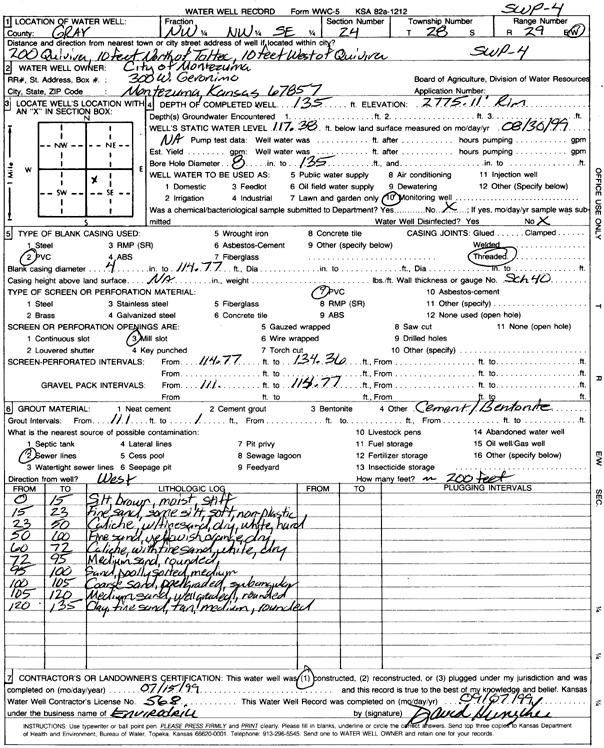 WATER WELL RECORD Form WWC-5 KSA 82a-1212 SWP-4
1 LOCATION OF WATER WELL: Fraction Section Number Township Number Range Number
County: GRAY NW ¼ NW ¼ SE ¼ 24 T 28 S R 29 E/W
Distance and direction from nearest town or city street address of well if located within city?
200 Quivira, 10 feet North of Toltec, 10 feet West of Quivira SWP-4
2 WATER WELL OWNER: City of Montezuma
RR#, St. Address, Box # : 300 W Geronimo Board of Agriculture, Division of Water Resources
City, State, ZIP Code : Montezuma, Kansas 67857 Application Number:
3 LOCATE WELL'S LOCATION WITH AN "X" IN SECTION BOX:
N
NW NE
W E
SW SE
X
S
1 Mile
4 DEPTH OF COMPLETED WELL 135 ft. ELEVATION: 2775.11' Rim
Depth(s) Groundwater Encountered 1. ft. 2. ft. 3. ft.
WELL'S STATIC WATER LEVEL 117.38 ft. below land surface measured on mo/day/yr 08/30/99
NA Pump test data: Well water was ft. after hours pumping gpm
Est. Yield gpm: Well water was ft. after hours pumping gpm
Bore Hole Diameter 8 in. to 135 ft., and in. to ft.
WELL WATER TO BE USED AS: 5 Public water supply 8 Air conditioning 11 Injection well
1 Domestic 3 Feedlot 6 Oil field water supply 9 Dewatering 12 Other (Specify below)
2 Irrigation 4 Industrial 7 Lawn and garden only 10 Monitoring well
Was a chemical/bacteriological sample submitted to Department? Yes No X; If yes, mo/day/yr sample was submitted Water Well Disinfected? Yes No X
5 TYPE OF BLANK CASING USED: 5 Wrought iron 8 Concrete tile CASING JOINTS: Glued Clamped
1 Steel 3 RMP (SR) 6 Asbestos-Cement 9 Other (specify below) Welded
2 PVC 4 ABS 7 Fiberglass Threaded
Blank casing diameter 4 in. to 114.77 ft., Dia in. to ft., Dia in. to ft.
Casing height above land surface NA in., weight lbs./ft. Wall thickness or gauge No. Sch 40
TYPE OF SCREEN OR PERFORATION MATERIAL: 7 PVC 10 Asbestos-cement
1 Steel 3 Stainless steel 5 Fiberglass 8 RMP (SR) 11 Other (specify)
2 Brass 4 Galvanized steel 6 Concrete tile 9 ABS 12 None used (open hole)
SCREEN OR PERFORATION OPENINGS ARE: 5 Gauzed wrapped 8 Saw cut 11 None (open hole)
1 Continuous slot 3 Mill slot 6 Wire wrapped 9 Drilled holes
2 Louvered shutter 4 Key punched 7 Torch cut 10 Other (specify)
SCREEN-PERFORATED INTERVALS: From 114.77 ft. to 134.36 ft., From ft. to ft.
From ft. to ft., From ft. to ft.
GRAVEL PACK INTERVALS: From 111. ft. to 114.77 ft., From ft. to ft.
From ft. to ft., From ft. to ft.
6 GROUT MATERIAL: 1 Neat cement 2 Cement grout 3 Bentonite 4 Other Cement/Bentonite
Grout Intervals: From 111 ft. to 1 ft., From ft. to ft., From ft. to ft.
What is the nearest source of possible contamination: 10 Livestock pens 14 Abandoned water well
1 Septic tank 4 Lateral lines 7 Pit privy 11 Fuel storage 15 Oil well/Gas well
2 Sewer lines 5 Cess pool 8 Sewage lagoon 12 Fertilizer storage 16 Other (specify below)
3 Watertight sewer lines 6 Seepage pit 9 Feedyard 13 Insecticide storage
Direction from well? West How many feet? ~ 200 feet
FROM TO LITHOLOGIC LOG FROM TO PLUGGING INTERVALS
0 15 Silt brown, moist, stiff
15 23 Fine sand, some silt, soft, non-plastic
23 50 Caliche, w/ fine sand, dry, white, hard
50 60 Fine sand, yellowish orange, dry
60 72 Caliche, with fine sand, white, dry
72 95 Medium sand, rounded
95 100 Sand, poorly sorted, medium
100 105 Coarse sand, poor graded, subangular
105 120 Medium sand, well graded, rounded
120 135 Clay, fine sand, tan, medium, rounded
7 CONTRACTOR'S OR LANDOWNER'S CERTIFICATION: This water well was (1) constructed, (2) reconstructed, or (3) plugged under my jurisdiction and was
completed on (mo/day/year) 07/15/99 and this record is true to the best of my knowledge and belief. Kansas
Water Well Contractor's License No. 568 This Water Well Record was completed on (mo/day/yr) 09/07/99
under the business name of Envirodrill by (signature)
INSTRUCTIONS: Use typewriter or ball point pen. PLEASE PRESS FIRMLY and PRINT clearly. Please fill in blanks, underline or circle the correct answers. Send top three copies to Kansas Department
of Health and Environment, Bureau of Water, Topeka, Kansas 66620-0001. Telephone: 913-296-5545. Send one to WATER WELL OWNER and retain one for your records.
OFFICE USE ONLY
T
R
E/W
SEC.
¼
¼
¼